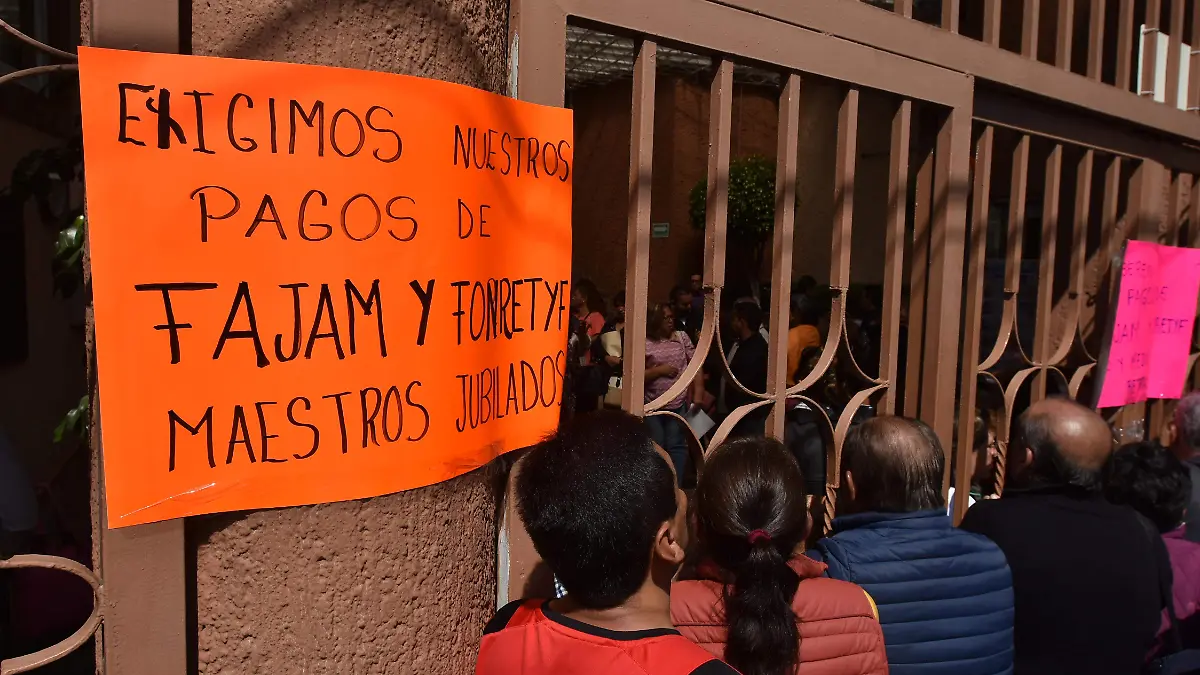 EXIGIMOS NUESTROS
PAGOS DE
FAJAM Y FONRETYF
MAESTROS JUBILADOS
PAGOS DE
Y